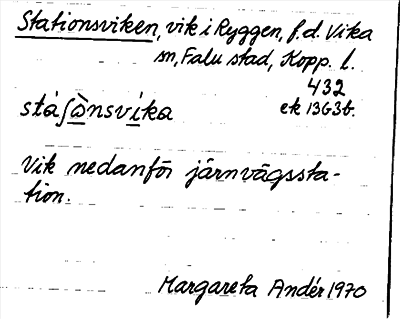 Stationsviken, vik i Ryggen, f.d. Vika
sn, Falu stad, Kopp. l.
432
ek 13G3b.
stáʃὼnsvika
Vik nedanför järnvägssta-
tion.
Margareta Andér 1970